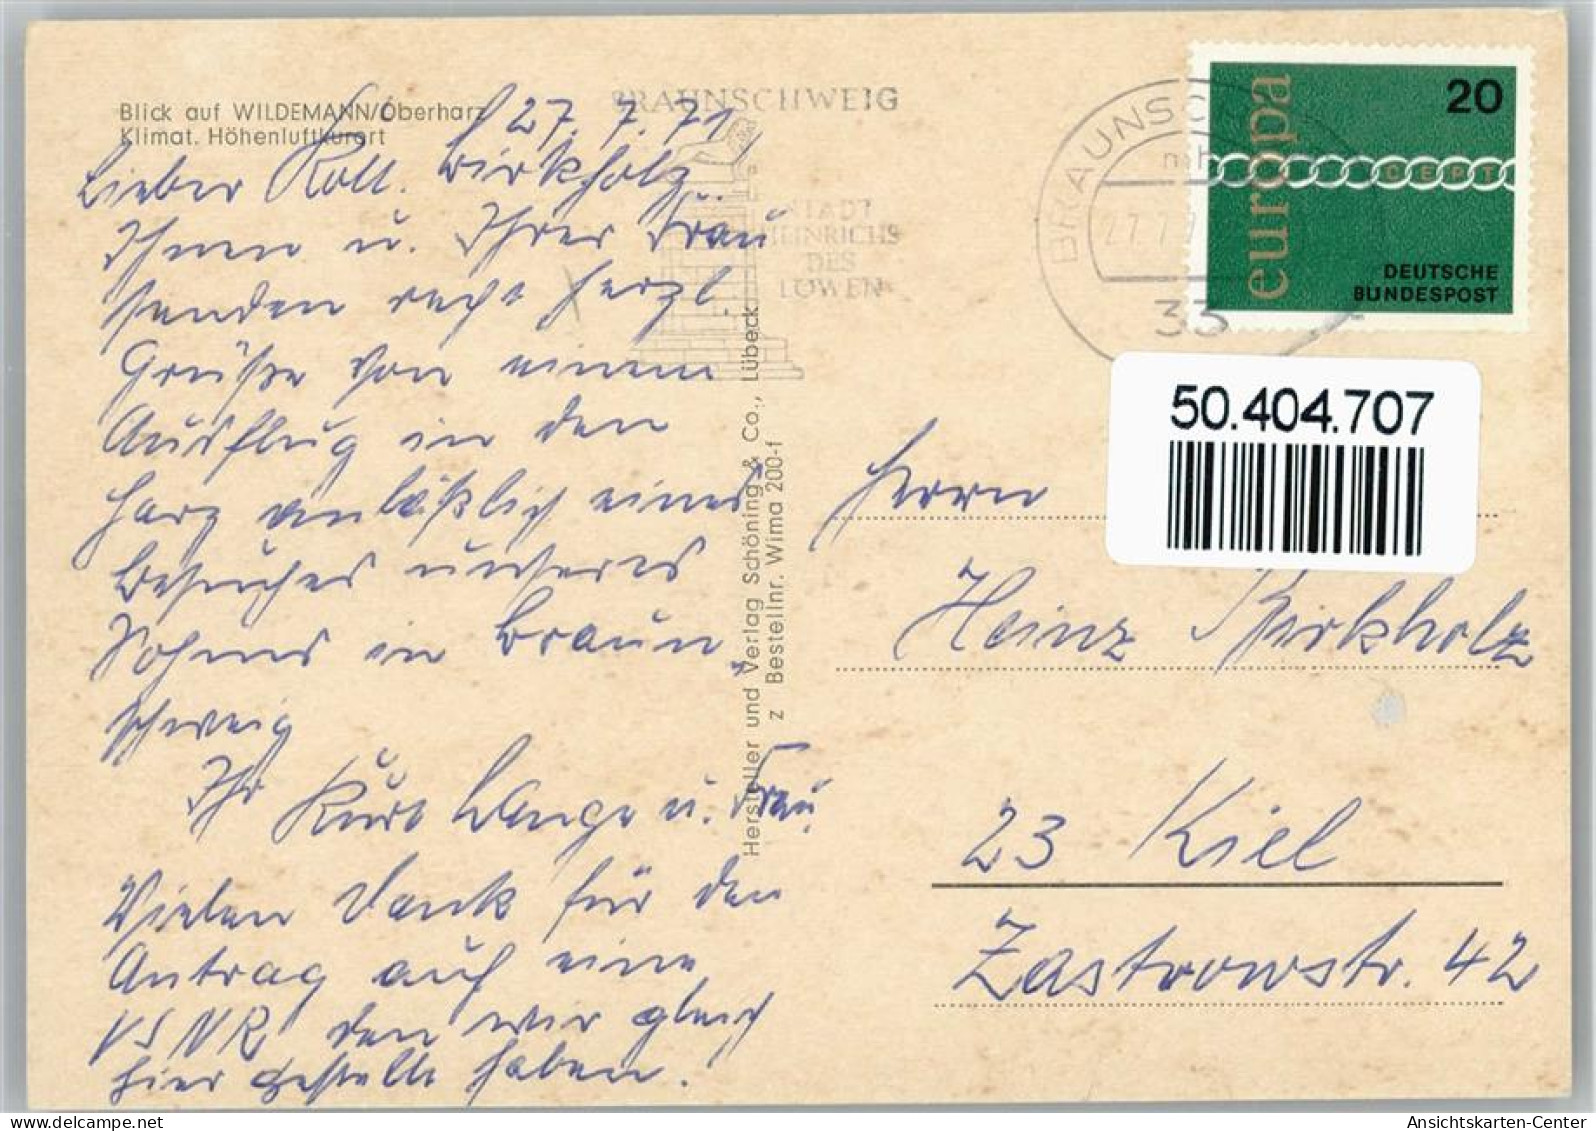 Blick auf WILDEMANN/Oberharz
Klimat. Höhenluftkurort
27. 7. 71
Lieber Koll. Birkholz.
Ihnen u. Ihrer Frau
senden recht herzl.
Grüße von einem
Ausflug in den
Harz anläßlich eines
Besuches unseres
Sohnes in Braun„
schweig
Ihr Kurt Lange u. Frau.
Vielen Dank für den
Antrag auf eine
VSNR den wir gleich
hier gestellt haben.
Hersteller und Verlag Schöning & Co., Lübeck
z Bestellnr. Wima 200-f
BRAUNSCHWEIG
STADT
HEINRICHS
DES
LÖWEN
BRAUNSC
33
europa
20
CEPT
DEUTSCHE
BUNDESPOST
50.404.707
Herrn
Heinz Birkholz
23 Kiel
Zastrowstr. 42
Ansichtskarten-Center